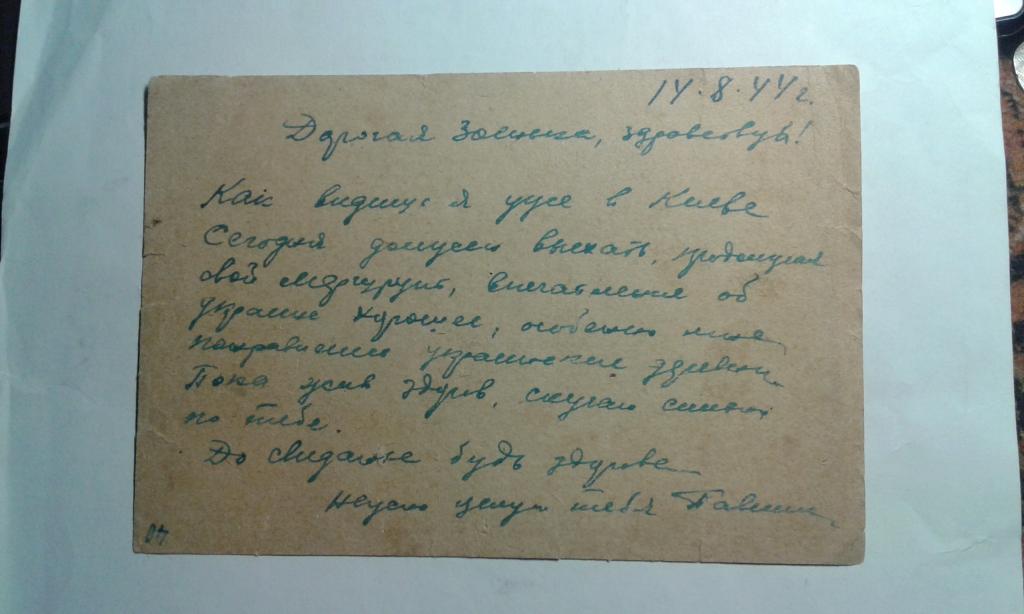 14.8.44 г.
Дорогая Зосинька, здравствуй!
Как видишь я уже в Киеве
Сегодня должен выехать, продолжая
свой маршрут, впечатления об
украине хорошее, особенно мне
понравились украинские
Пока жив здоров, скучаю сильно
по тебе.
До свидание будь здорова
целую тебя
04